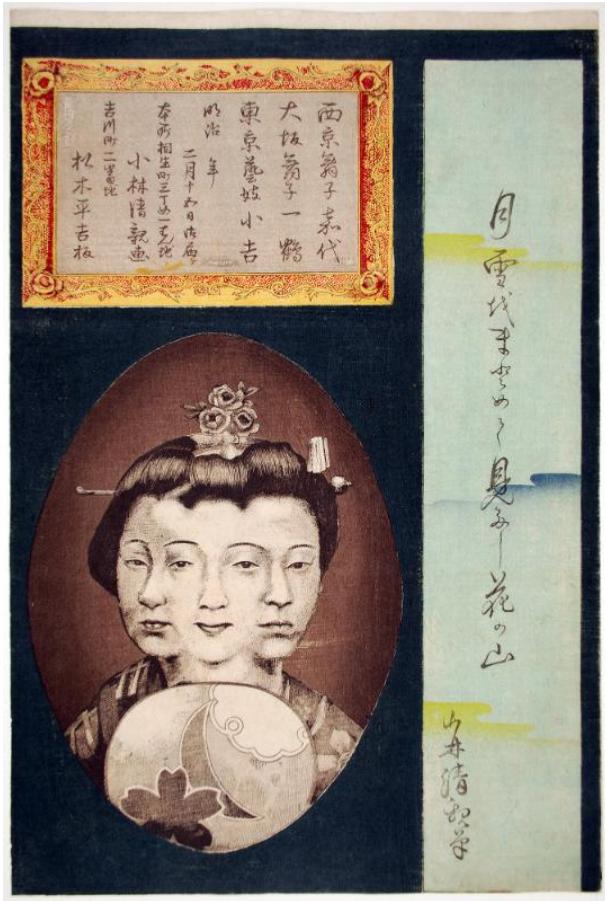 月雪をまとめて見たし花の山
小林清親筆
西京舞子嘉代
大坂舞子一鶴
東京藝妓小吉
明治 年
二月十 日御届
本所相生町三丁め 地
小林清親画
吉川町二番地
松木平吉板